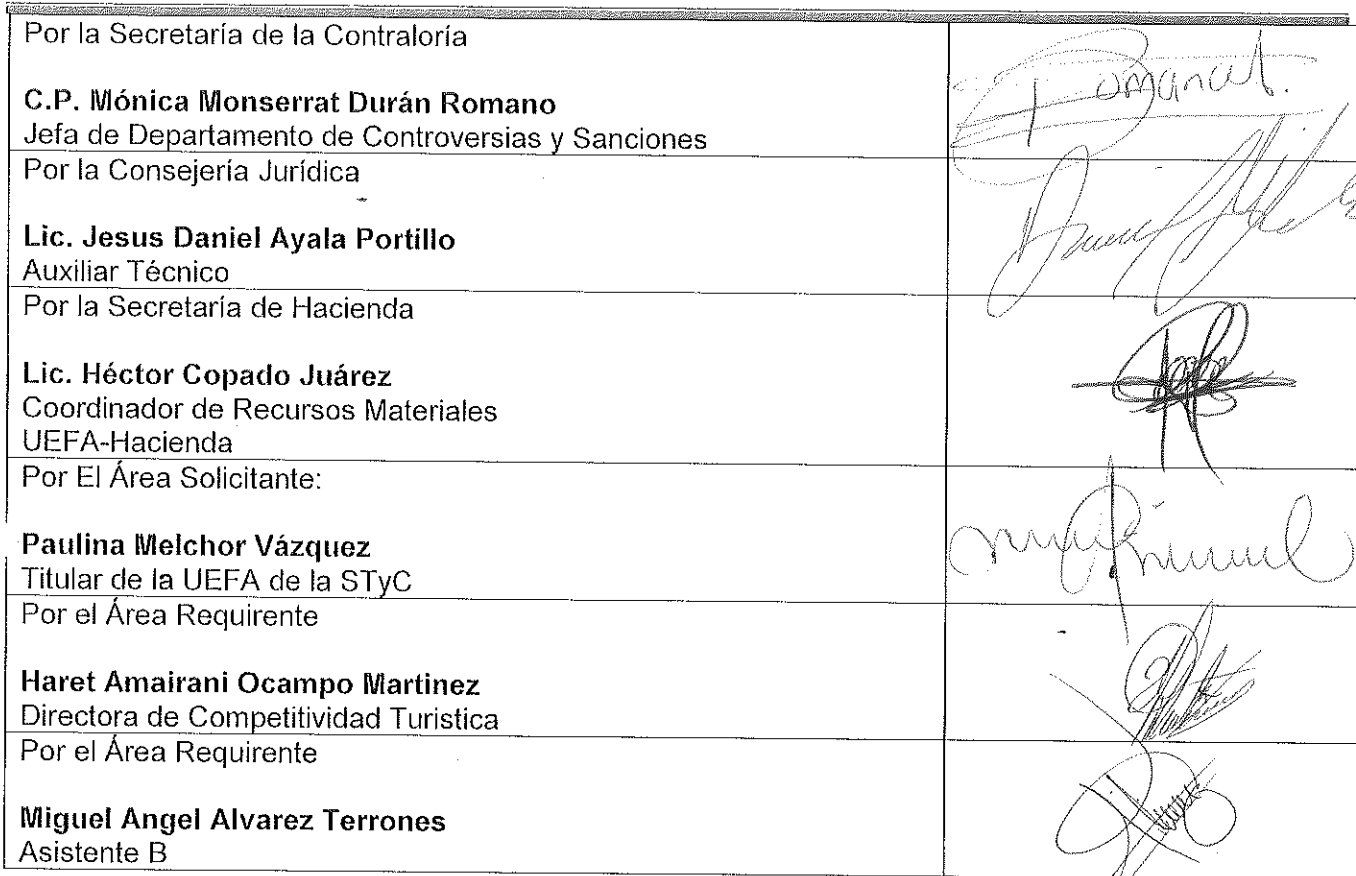 Por la Secretaría de la Contraloría
C.P. Mónica Monserrat Durán Romano
Jefa de Departamento de Controversias y Sanciones
Por la Consejería Jurídica
Lic. Jesus Daniel Ayala Portillo
Auxiliar Técnico
Por la Secretaría de Hacienda
Lic. Héctor Copado Juárez
Coordinador de Recursos Materiales
UEFA-Hacienda
Por El Área Solicitante:
Paulina Melchor Vázquez
Titular de la UEFA de la STyC
Por el Área Requirente
Haret Amairani Ocampo Martinez
Directora de Competitividad Turistica
Por el Área Requirente
Miguel Angel Alvarez Terrones
Asistente B